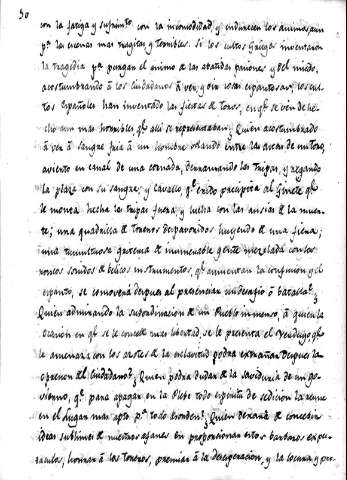 30
con la fatiga y sufrimto con la incomodidad, y endurecen los animos aun
pa las escenas mas tragicas y terribles. Si los cultos Griegos inventaron
la tragedia pa purgar el animo de las abatidas pasiones y del miedo,
acostumbrando â los Ciudadanos â ver, y oir cosas espantosas, los cul
tos Españoles han inventado las fiestas de toros, en qe se vên de he-
cho aun mas horribles qe alli se representaban. Quien acostumbrado
â ver â sangre fria â un hombre volando entre las astas de un toro,
avierto en canal de una cornada, derramando las tripas, y regando
la plaza con su sangre, y Cavallo qe erido precipita al Ginete qe
le monta hecha las tripas fuera y lucha con las ansias de la muer-
te; una quadrilla de toreros despavoridos huyendo de una fiera;
una tumultuosa griteria de innumerable gente mezclada con los
roncos sonidos de belicos instrumentos, qe aumentan la confusion y el
espanto, se comoverá despues al presenciar un desafio ô batalla? ¿
Quien admirando la subordinacion de un Pueblo inmenso, â quien la
ocasion en qe se le concede mas libertad, se le presenta el Verdugo qe
le amenaza con los azotes de la esclavitud podrá extrañar despues la
opresion del Ciudadano? ¿Quien podra dudar de la sabiduria de un go-
vierno, qe para apagar en la Plebe todo espiritu de sedicion la reune
en el Lugar mas apto pa todo desorden? ¿Quien dexará de concebir
ideas sublimes de nuestros afanes en proporcionar estos barbaros expec
taculos, honrar â los toreros, premiar â la desesperacion, y la locura y pro-